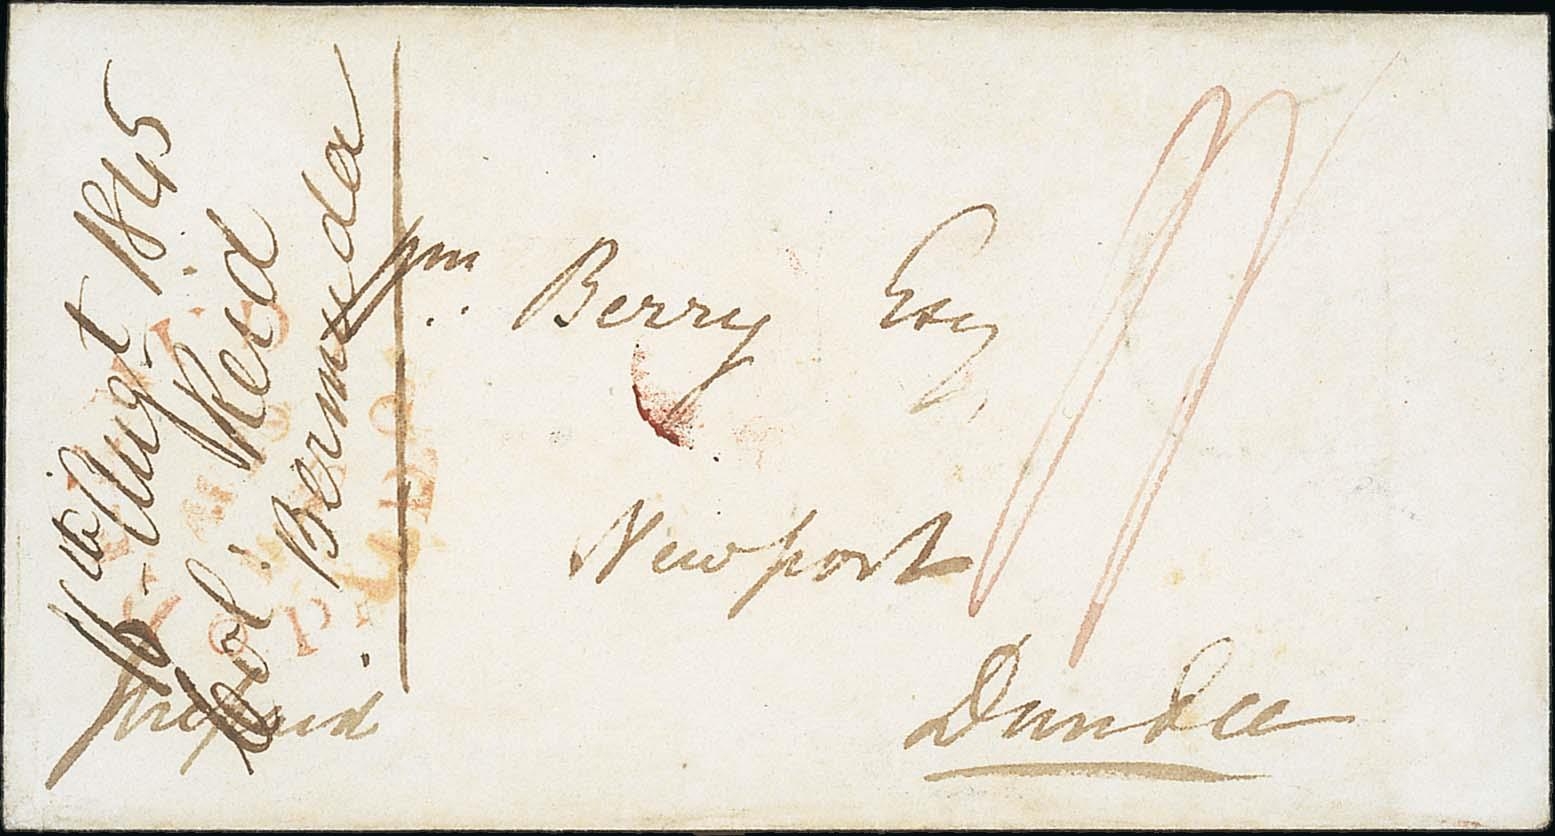 Wm. Berry Esq,
Newport
Dundee
prepaid
16th Augt 1845
Col. Reid
Bermuda